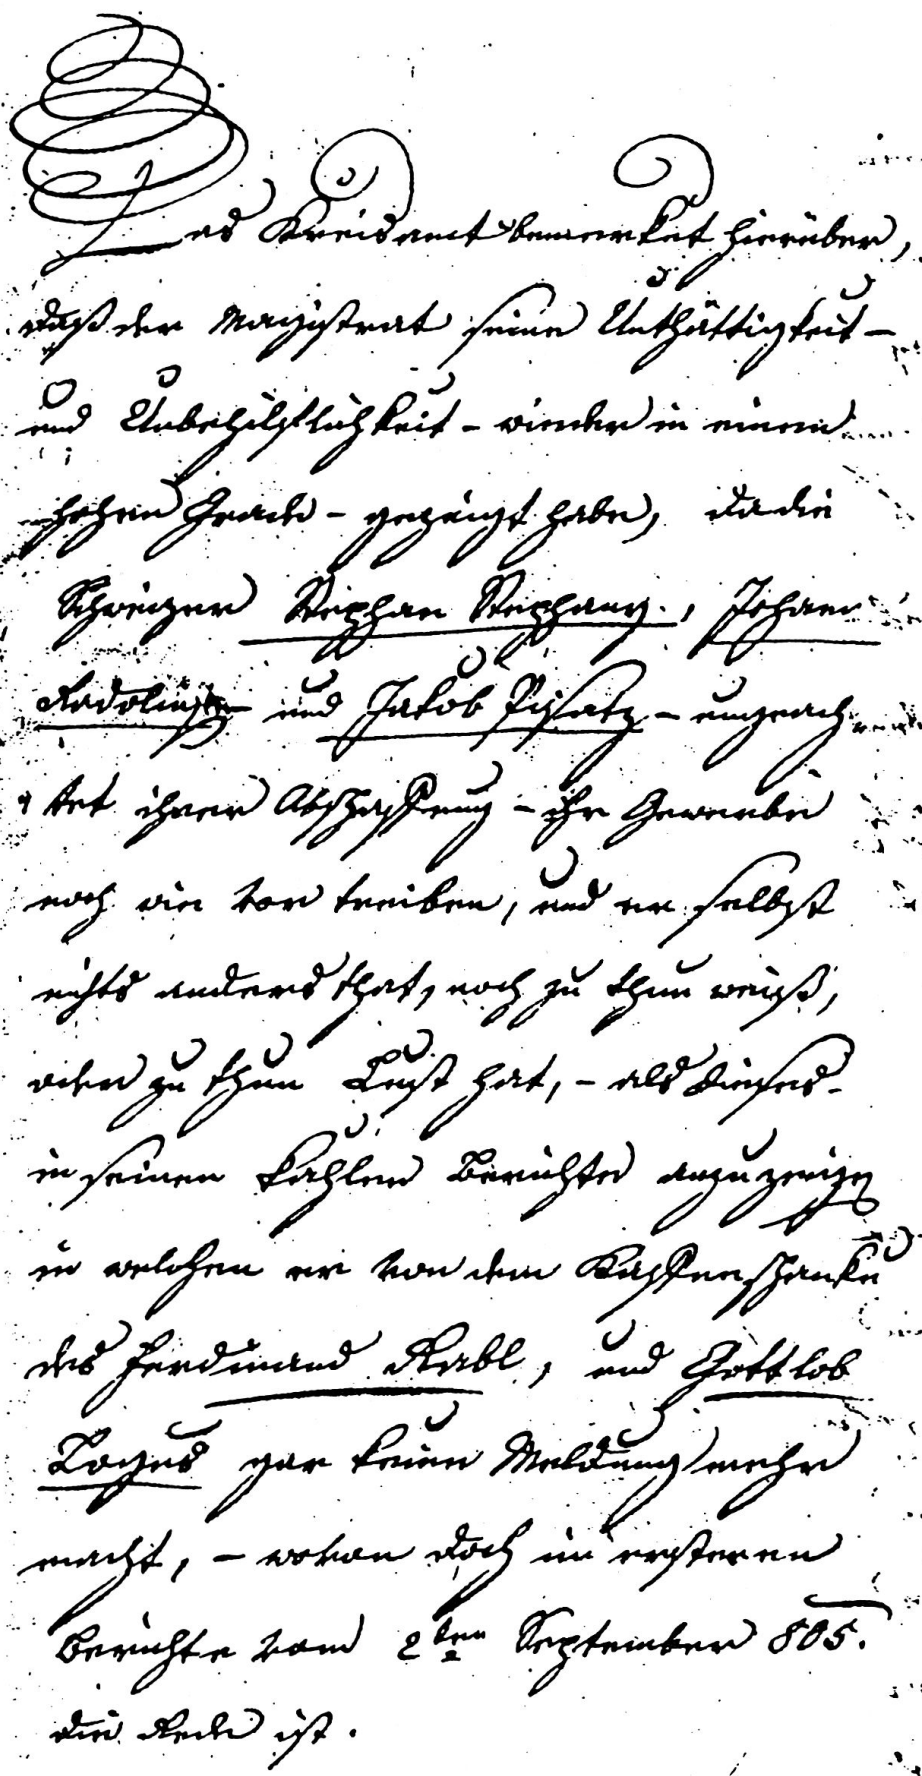 Das Kreisamt bemerket hierüber,
daß der Magistrat seine Unthättigkeit –
und Unbehilflichkeit – wieder in einem
hohen Grade – gezeigt habe, da die
Schweizer Stephan Stephany., Johann
und Jakob – ungeach
tet ihrer Abschaffung – ihr Gewerbe
noch wie vor treiben, und er selbst
nichts anders that, noch zu thun weiß,
oder zu thun Lust hat, – als dieses
in seinen kahlen Berichten anzuzeigen
in welchen er von dem Kaffeeschanke
des Ferdinand Rabl, und Gottlob
gar keine Meldung mehr
macht, – wovon doch im ersteren
Berichte vom 2ten September 805.
die Rede ist.